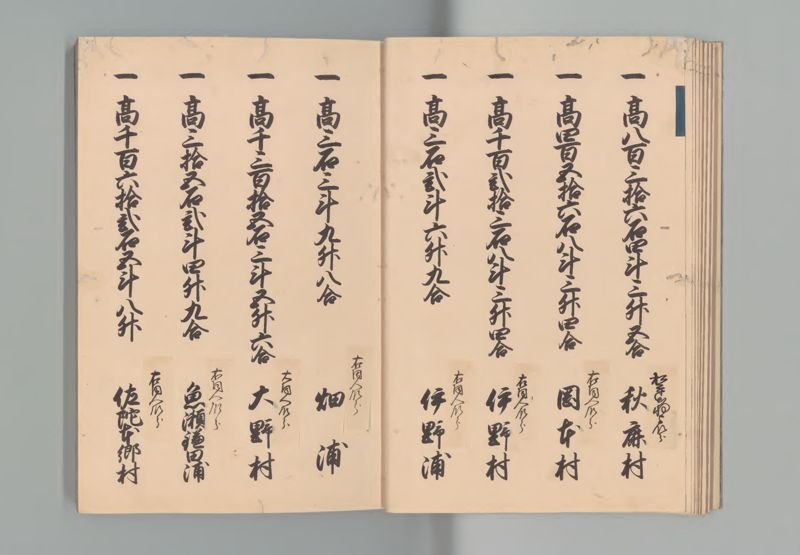 一 高八百三拾六石四斗三升五合
秋鹿村
一 高四百五拾六石八斗三升四合
右同人
岡本村
一 高千百弐拾三石八斗三升四合
右同人
伊野村
一 高三石弐斗六升九合
右同人
伊野浦
一 高三石三斗九升八合
右同人
畑浦
一 高千三百拾五石三斗五升六合
右同人
大野村
一 高三拾五石弐斗四升九合
右同人
魚瀬鎌田浦
一 高千百六拾弐石五斗八升
右同人
佐陀本郷村